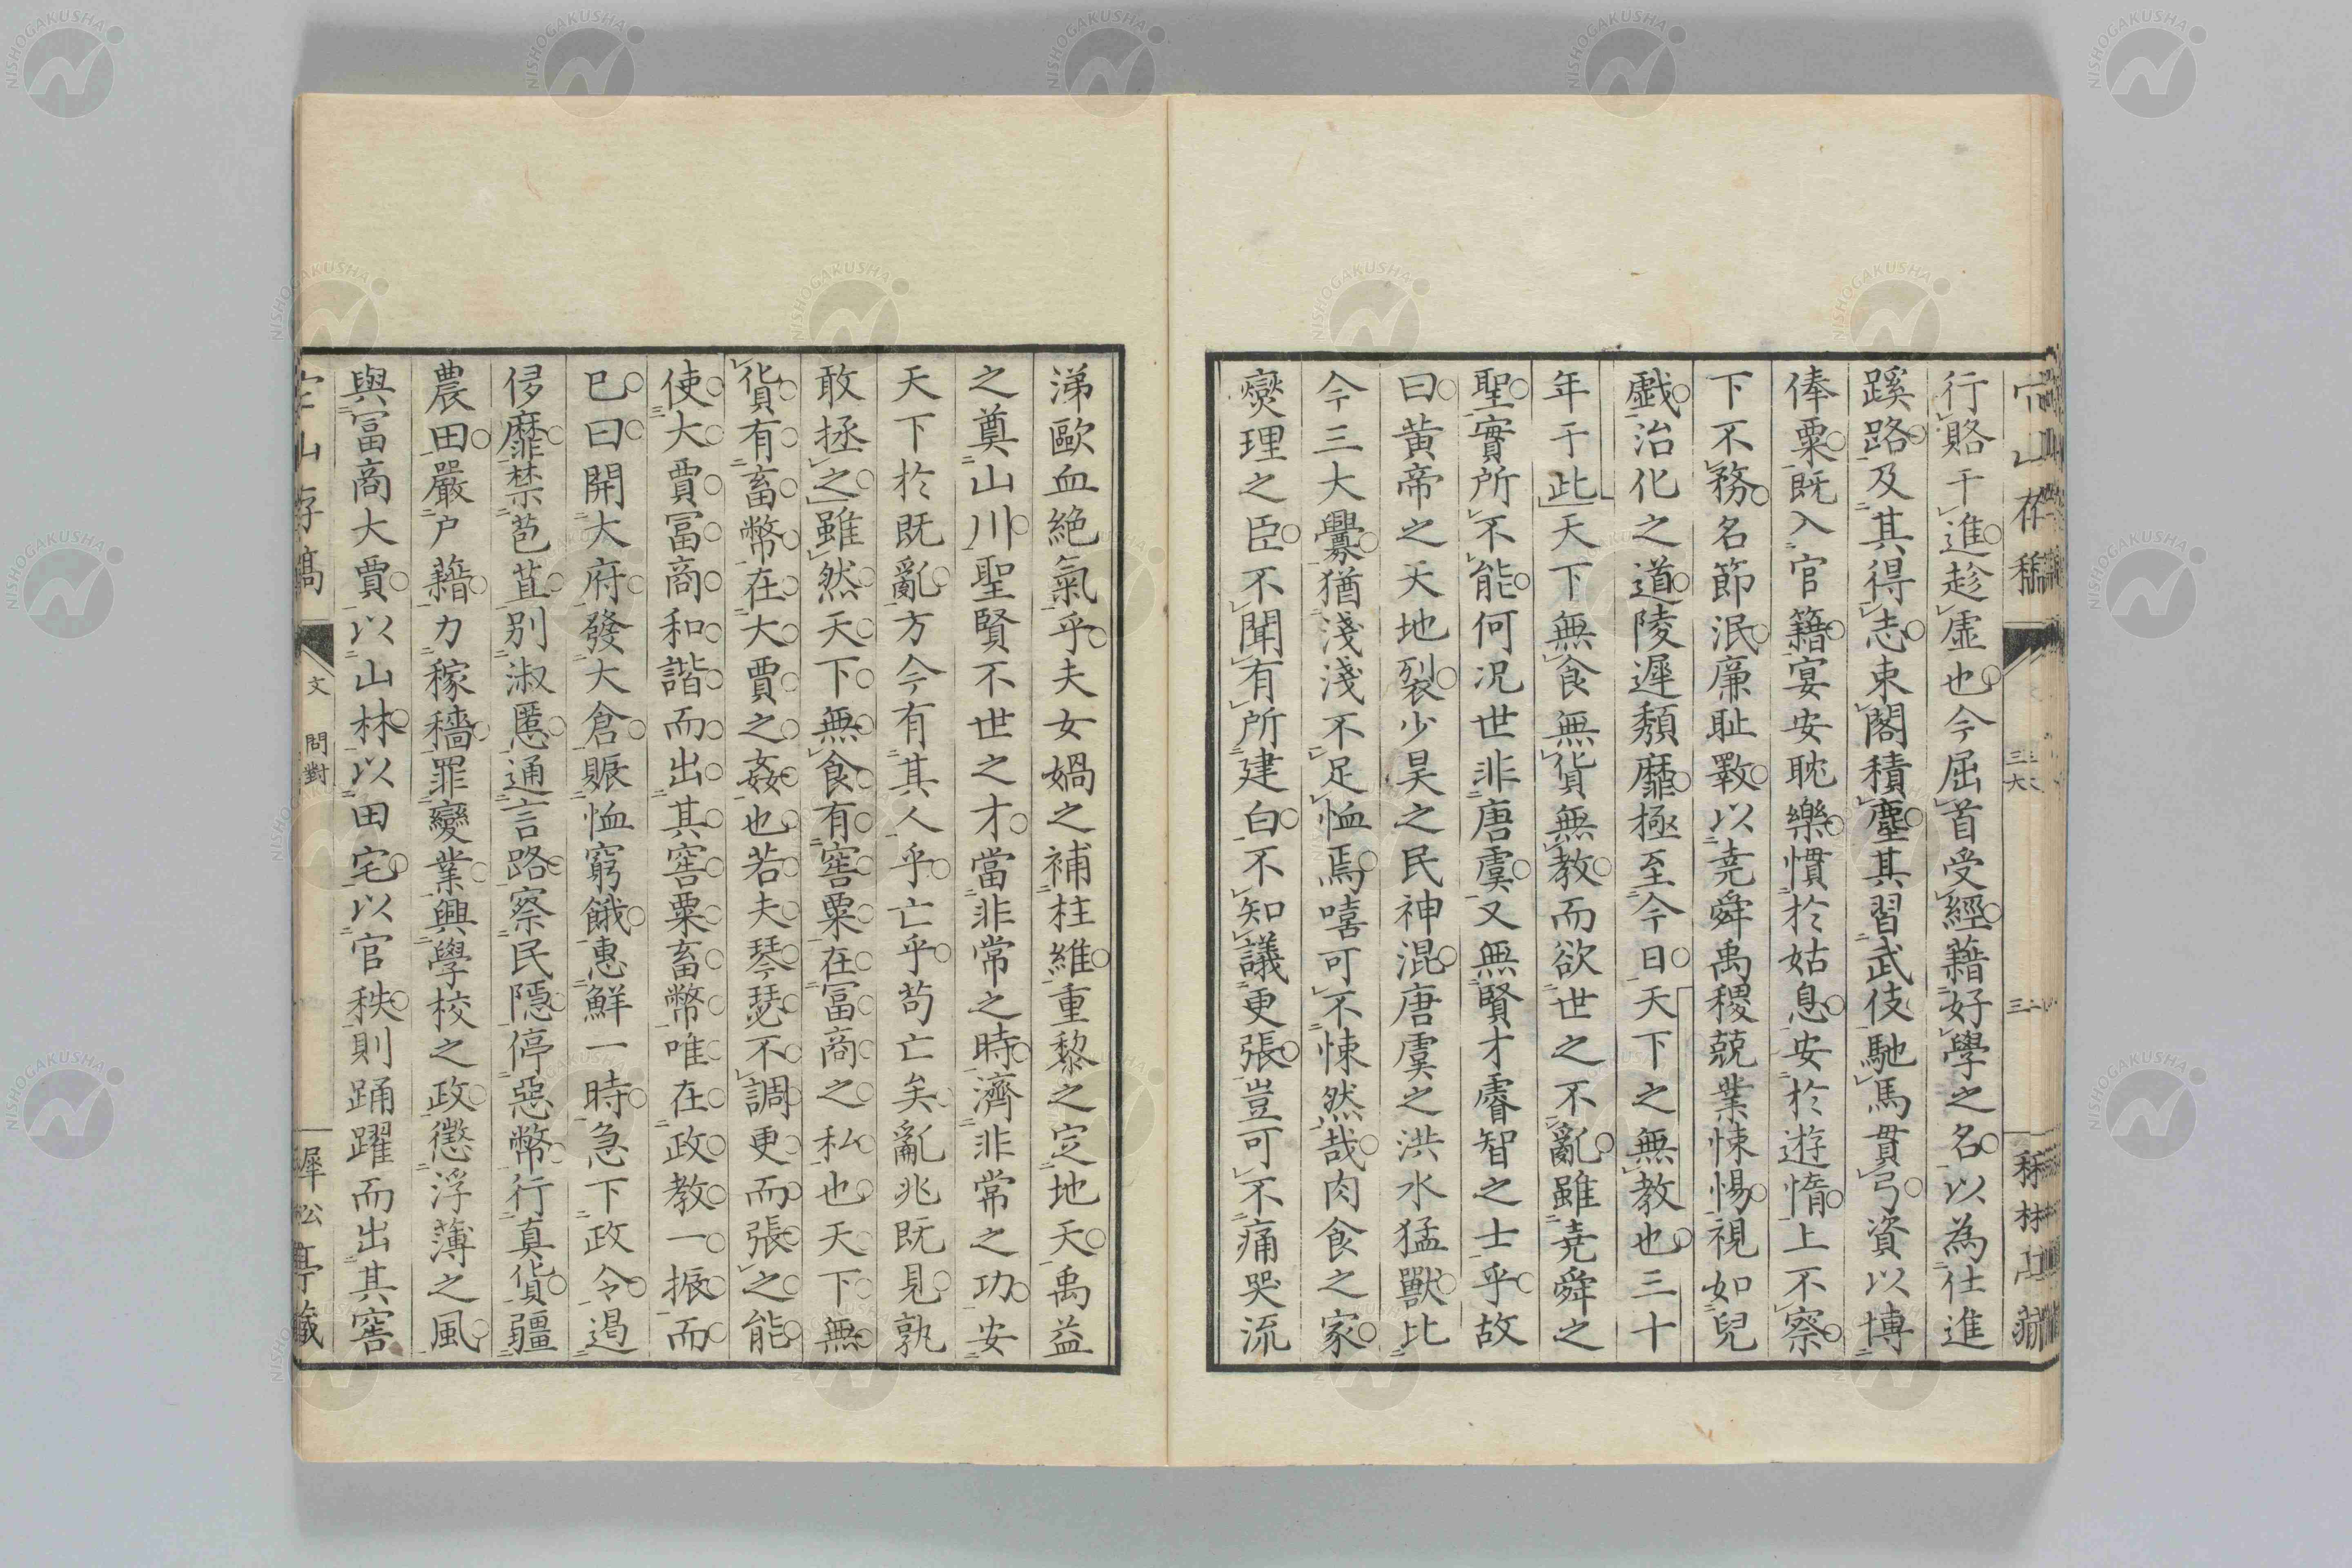 行賂干進趁虛也今屈首受經藉好學之名以為仕進
蹊路及其得志束閣積塵其習武伎馳馬貫弓資以博
俸粟既入官籍宴安耽樂慣於姑息安於遊惰上不察
下不務名節泯廉耻斁以堯舜禹稷兢業悚惕視如兒
戯治化之道陵遲頽靡極至今日天下之無教也三十
年于此天下無食無貨無教而欲世之不亂雖堯舜之
聖實所不能何況世非唐虞又無賢才睿智之士乎故
曰黄帝之天地裂少昊之民神混唐虞之洪水猛獸比
今三大釁猶淺淺不足恤焉嘻可不悚然哉肉食之家
燮理之臣不聞有所建白不知議更張豈可不痛哭流
涕歐血絶氣乎夫女媧之補柱維重黎之定地天禹益
之奠山川聖賢不世之才當非常之時濟非常之功安
天下於既亂方今有其人乎亡乎苟亡矣亂兆既見孰
敢拯之雖然天下無食有窖粟在冨商之私也天下無
貨有畜幣在大賈之姦也若夫琴瑟不調更而張之能
使大賈冨商和諧而出其窖粟畜幣唯在政教一振而
已曰開大府發大倉賑恤窮餓惠鮮一時急下政令遏
侈靡禁苞苴別淑慝通言路察民隱停惡幣行真貨疆
農田嚴户藉力稼穡罪變業興學校之政懲浮薄之風
與冨商大賈以山林以田宅以官秩則踊躍而出其窖
文 問對